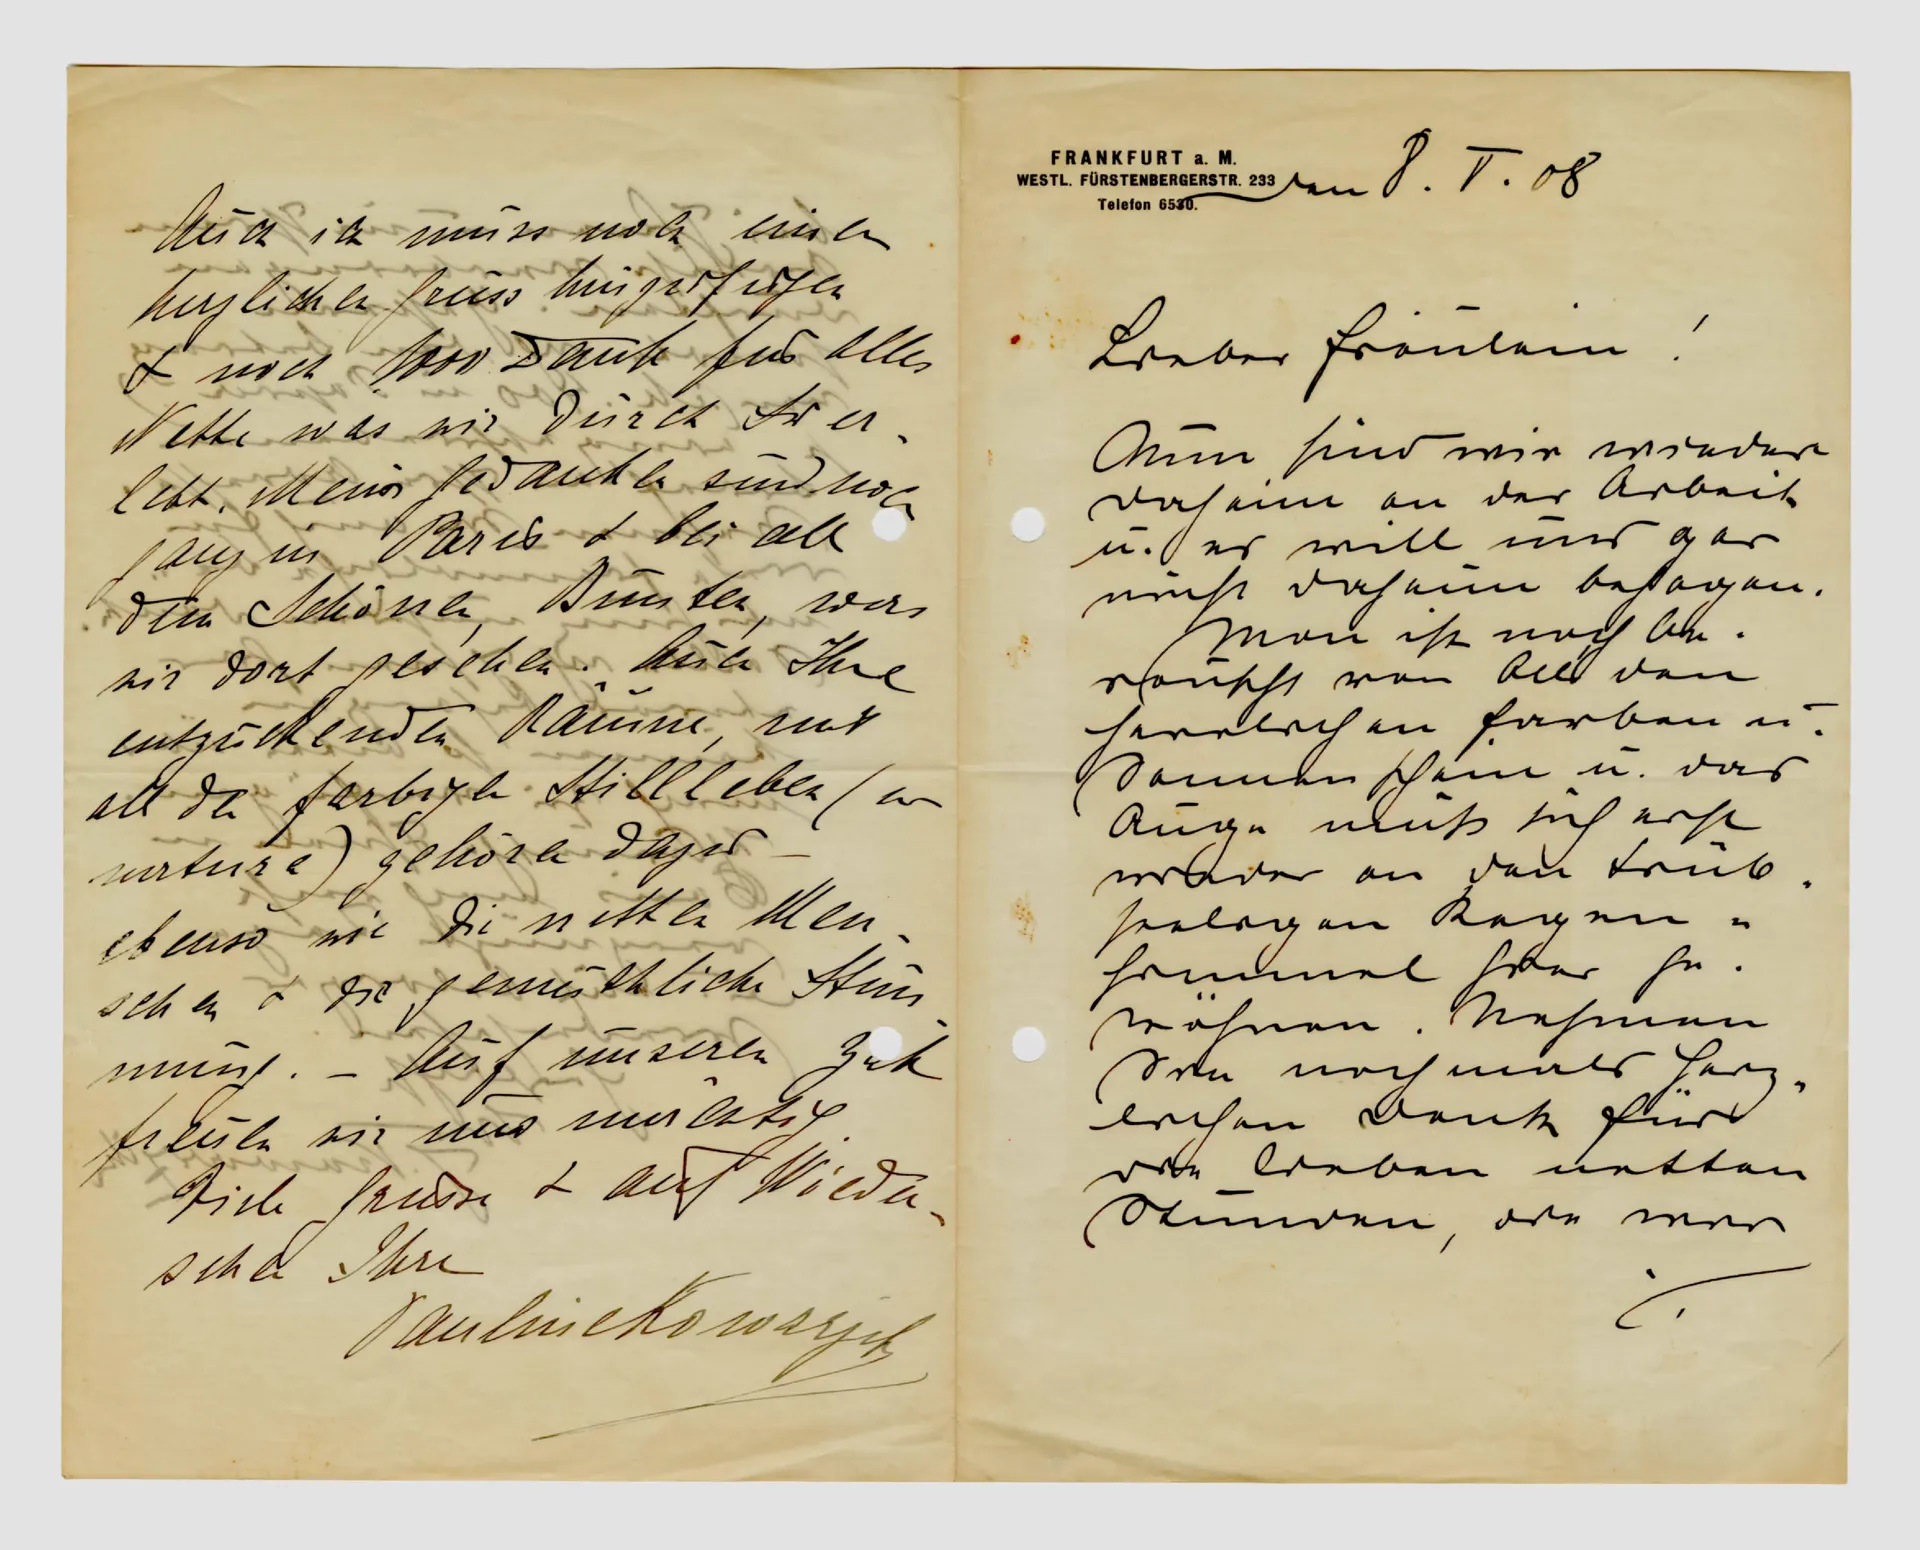 FRANKFURT a. M.
WESTL. FÜRSTENBERGERSTR. 233
Telefon 6530.
den 8. V. 08
Liebes Fräulein!
Nun sind wir wieder
daheim an der Arbeit
u. es will uns gar
nicht daheim behagen.
Man ist noch be-
rauscht von all den
herrlichen Farben u.
Sonnenschein u. das
Auge muß sich erst
wieder an den trüb-
seeligen Regen-
himmel hier ge-
wöhnen. Nehmen
Sie nochmals herz-
lichen Dank für
die lieben netten
Stunden, die wir
Auch ich muss noch einen
herzlichen Gruss hinzufügen
& noch 1000 Dank für alles
Nette was wir durch Sie er-
lebt. Meine Gedanken sind noch
ganz in Paris & bei all
dem Schönen, Bunten, was
wir dort gesehen. Auch Ihre
entzückenden Räume, mit
all den farbigen Stillleben (en
nature) gehören dazu –
ebenso wie die netten Men-
schen & die gemüthliche Stim-
mung. – Auf unseren
freuen wir uns mächtig.
Viele Grüsse & auf Wieder-
sehen Ihre
Pauline Kowarzik